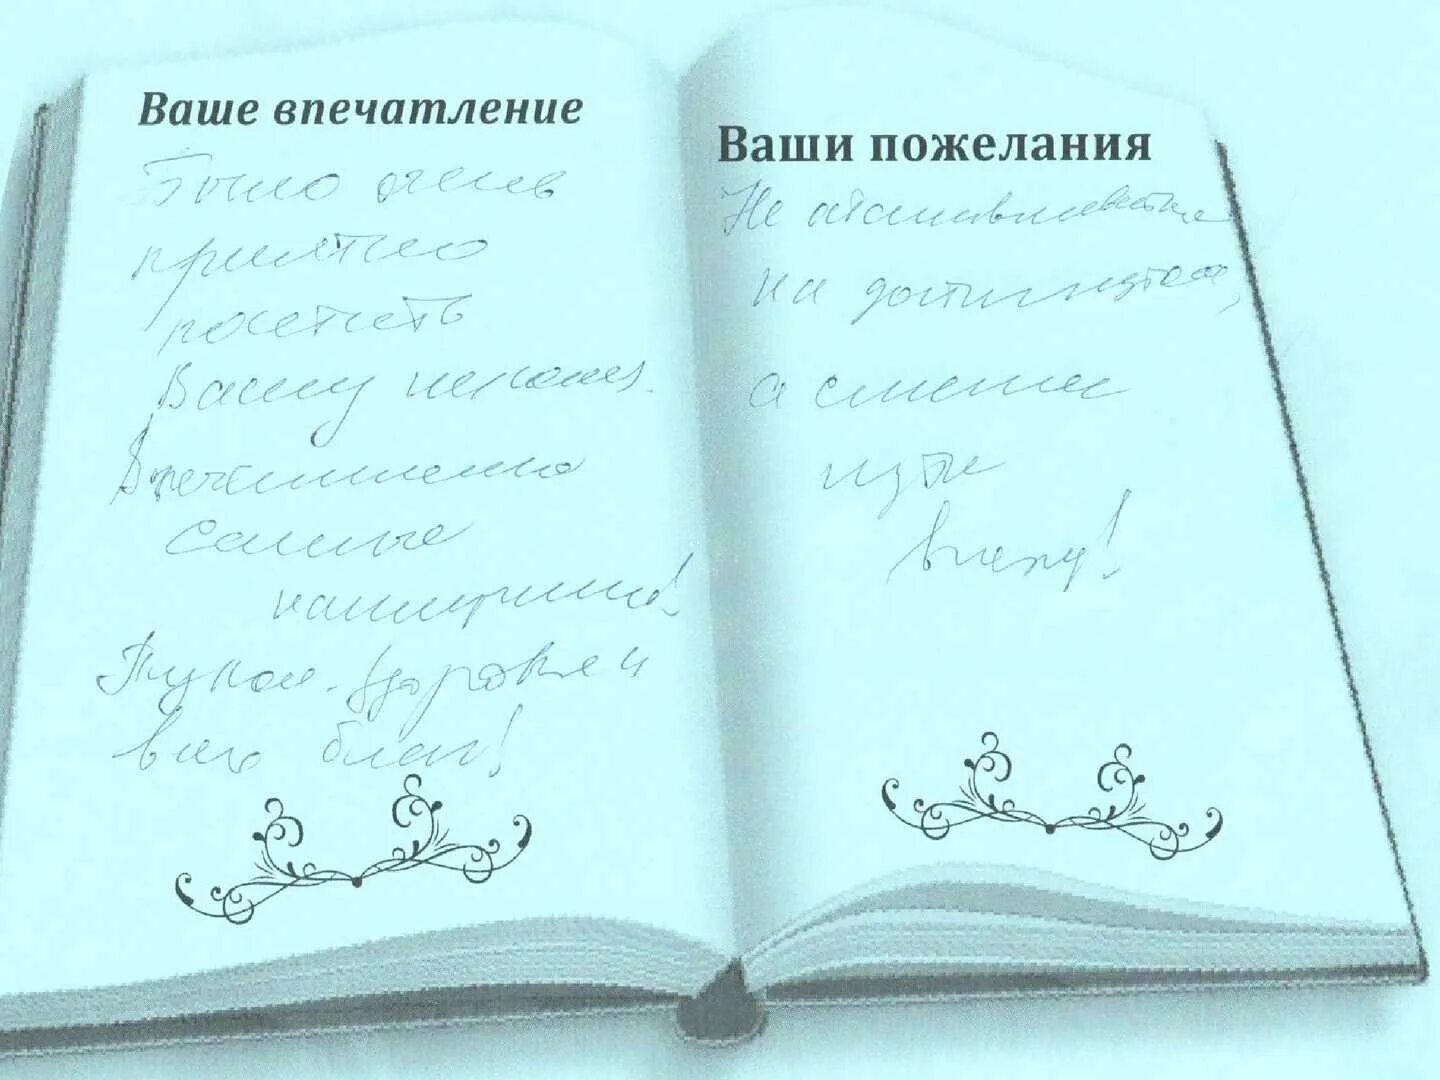 Ваше впечатление
Было очень
приятно
посетить
Вашу
Впечатление
самые
здоровья и
всех благ!
Ваши пожелания
Не останавливаться
на достигнутом,
а смело
идти
вперёд!